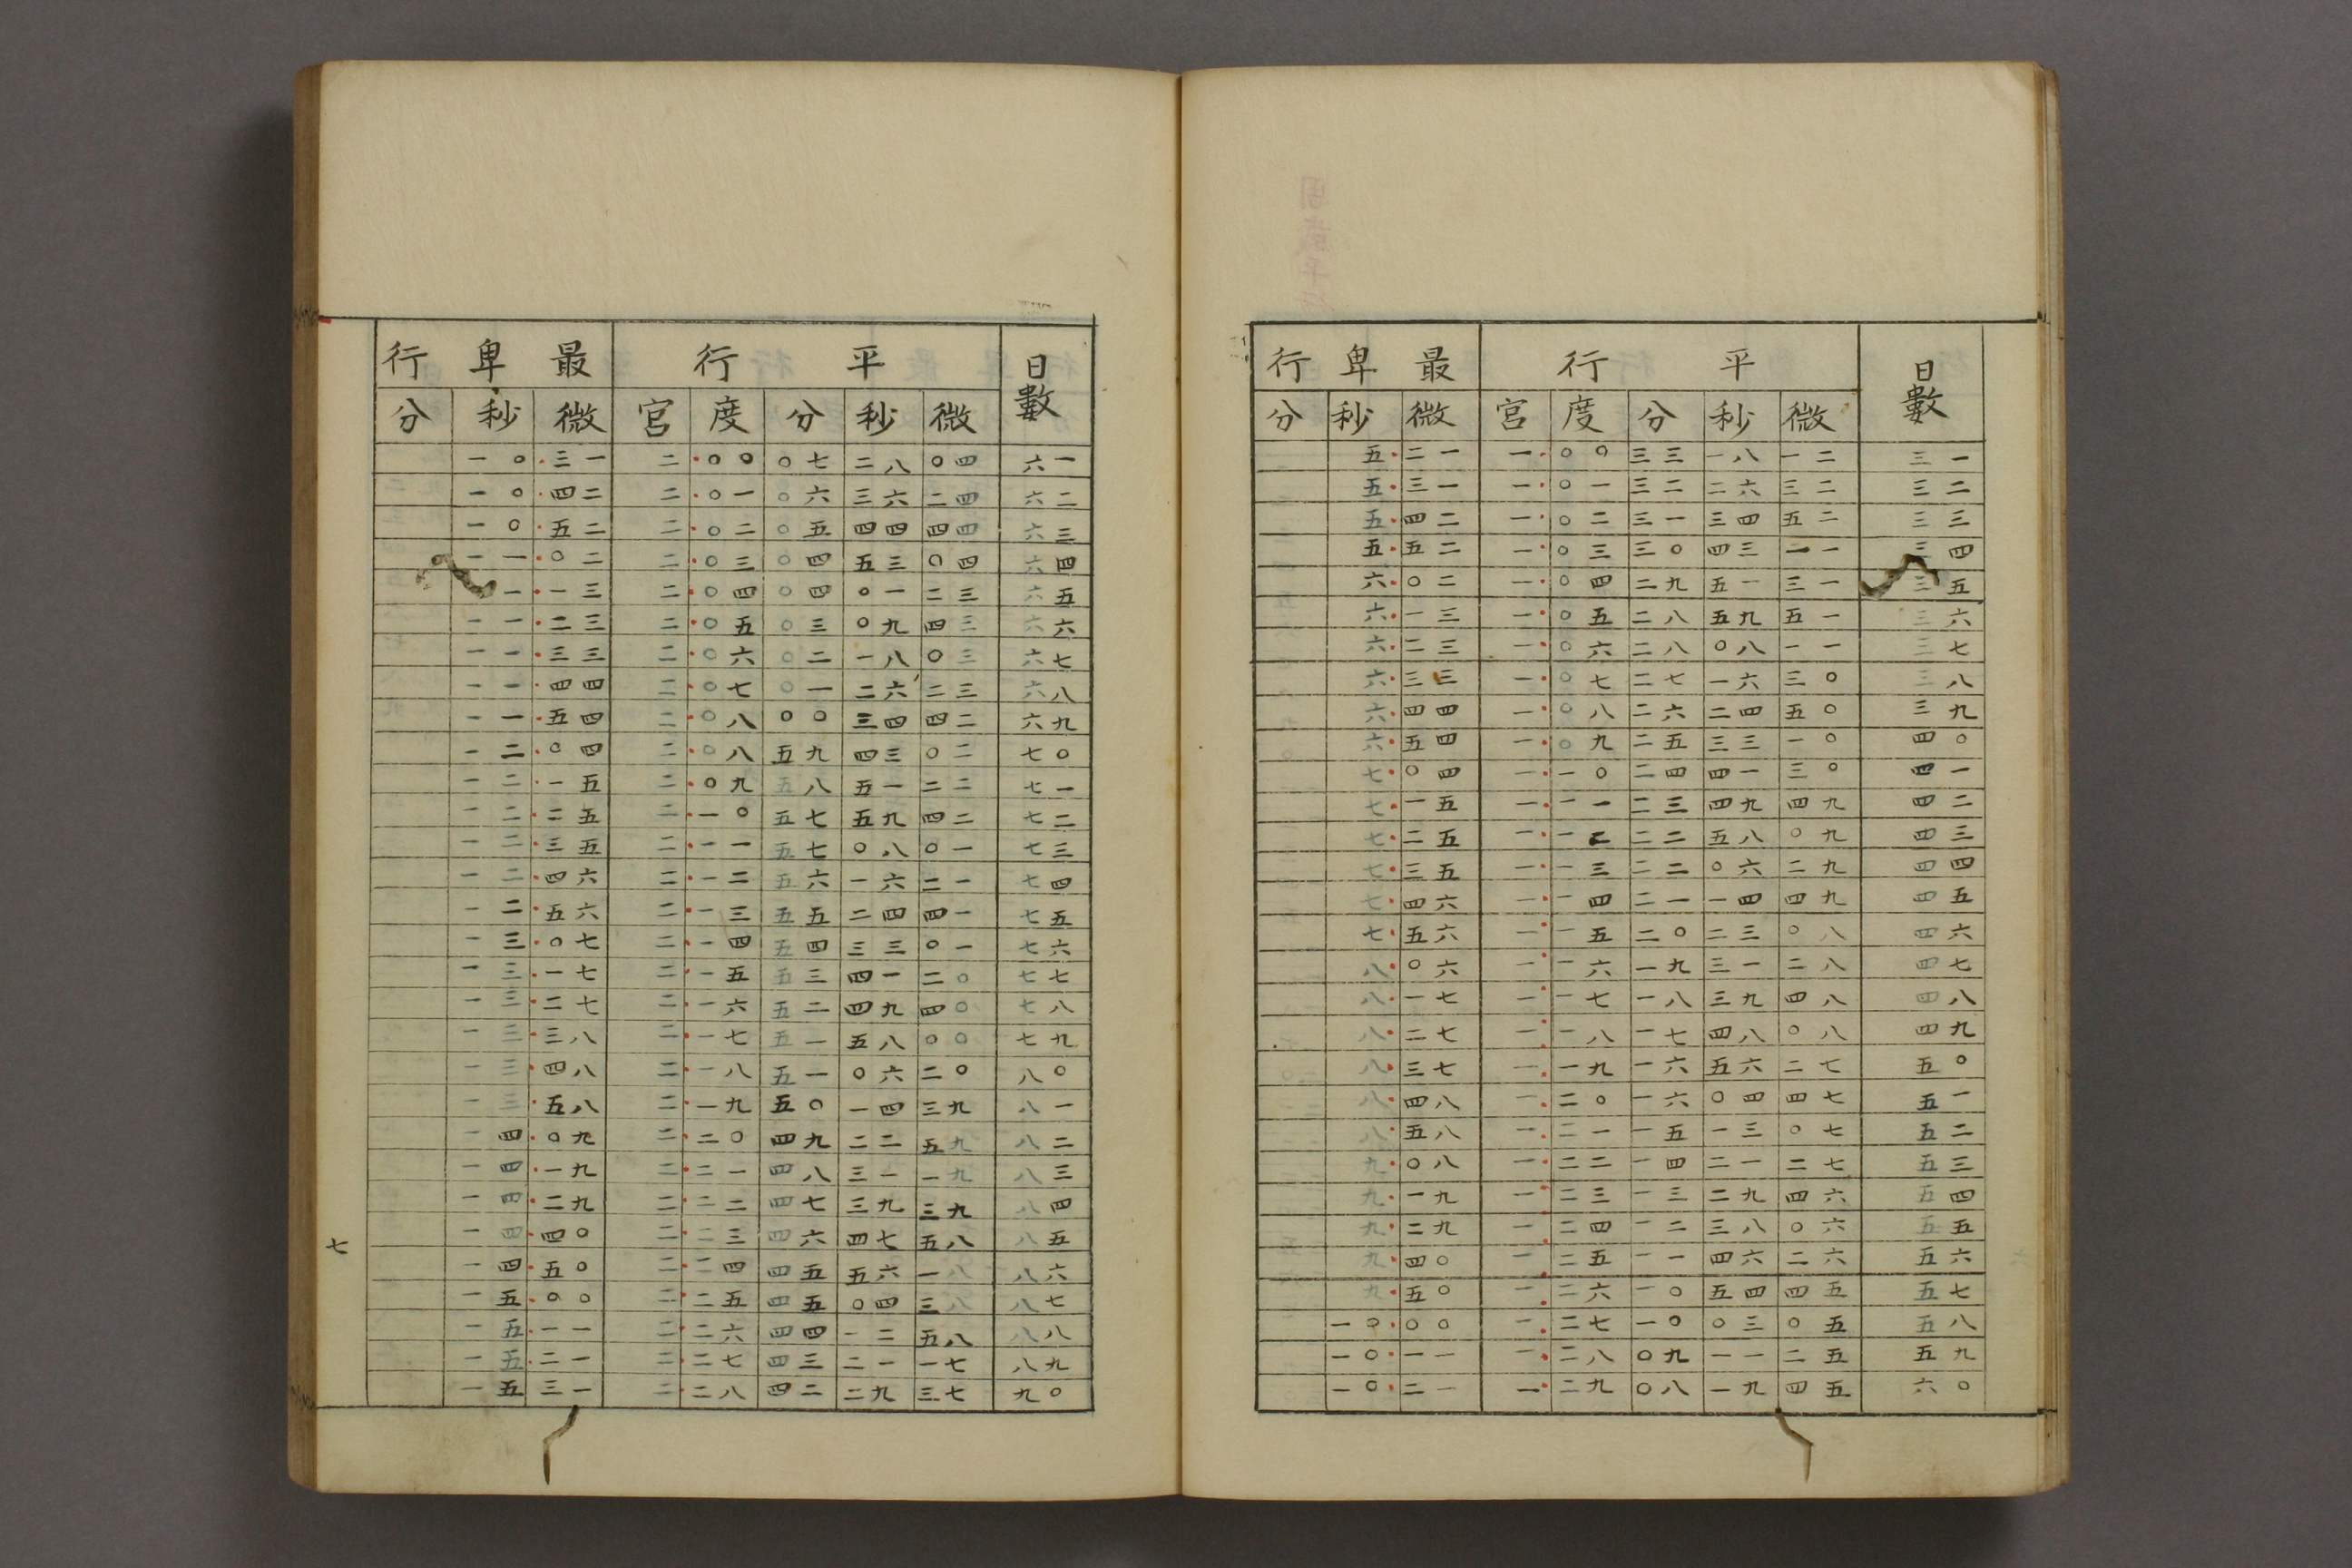 最卑行 平行 日數
分 秒 微 宮 度 分 秒 微
五 二一 一 〇〇 三三 一八 一二 三一
五 三一 一 〇一 三二 二六 三二 三二
五 四二 一 〇二 三一 三四 五二 三三
五 五二 一 〇三 三〇 四三 一一 三四
六 〇二 一 〇四 二九 五一 三一 三五
六 一三 一 〇五 二八 五九 五一 三六
六 二三 一 〇六 二八 〇八 一一 三七
六 三三 一 〇七 二七 一六 三〇 三八
六 四四 一 〇八 二六 二四 五〇 三九
六 五四 一 〇九 二五 三三 一〇 四〇
七 〇四 一 一〇 二四 四一 三〇 四一
七 一五 一 一一 二三 四九 四九 四二
七 二五 一 一二 二二 五八 〇九 四三
七 三五 一 一三 二二 〇六 二九 四四
七 四六 一 一四 二一 一四 四九 四五
七 五六 一 一五 二〇 二三 〇八 四六
八 〇六 一 一六 一九 三一 二八 四七
八 一七 一 一七 一八 三九 四八 四八
八 二七 一 一八 一七 四八 〇八 四九
八 三七 一 一九 一六 五六 二七 五〇
八 四八 一 二〇 一六 〇四 四七 五一
八 五八 一 二一 一五 一三 〇七 五二
九 〇八 一 二二 一四 二一 二七 五三
九 一九 一 二三 一三 二九 四六 五四
九 二九 一 二四 一二 三八 〇六 五五
九 四〇 一 二五 一一 四六 二六 五六
九 五〇 一 二六 一〇 五四 四五 五七
一〇 〇〇 一 二七 一〇 〇三 〇五 五八
一〇 一一 一 二八 〇九 一一 二五 五九
一〇 二一 一 二九 〇八 一九 四五 六〇
最卑行 平行 日數
分 秒 微 宮 度 分 秒 微
一〇 三一 二 〇〇 〇七 二八 〇四 六一
一〇 四二 二 〇一 〇六 三六 二四 六二
一〇 五二 二 〇二 〇五 四四 四四 六三
一一 〇二 二 〇三 〇四 五三 〇四 六四
一 一三 二 〇四 〇四 〇一 二三 六五
一一 二三 二 〇五 〇三 〇九 四三 六六
一一 三三 二 〇六 〇二 一八 〇三 六七
一一 四四 二 〇七 〇一 二六 二三 六八
一一 五四 二 〇八 〇〇 三四 四二 六九
一二 〇四 二 〇八 五九 四三 〇二 七〇
一二 一五 二 〇九 五八 五一 二二 七一
一二 二五 二 一〇 五七 五九 四二 七二
一二 三五 二 一一 五七 〇八 〇一 七三
一二 四六 二 一二 五六 一六 二一 七四
一二 五六 二 一三 五五 二四 四一 七五
一三 〇七 二 一四 五四 三三 〇一 七六
一三 一七 二 一五 五三 四一 二〇 七七
一三 二七 二 一六 五二 四九 四〇 七八
一三 三八 二 一七 五一 五八 〇〇 七九
一三 四八 二 一八 五一 〇六 二〇 八〇
一三 五八 二 一九 五〇 一四 三九 八一
一四 〇九 二 二〇 四九 二二 五九 八二
一四 一九 二 二一 四八 三一 一九 八三
一四 二九 二 二二 四七 三九 三九 八四
一四 四〇 二 二三 四六 四七 五八 八五
一四 五〇 二 二四 四五 五六 一八 八六
一五 〇〇 二 二五 四五 〇四 三八 八七
一五 一一 二 二六 四四 一二 五八 八八
一五 二一 二 二七 四三 二一 一七 八九
一五 三一 二 二八 四二 二九 三七 九〇
七